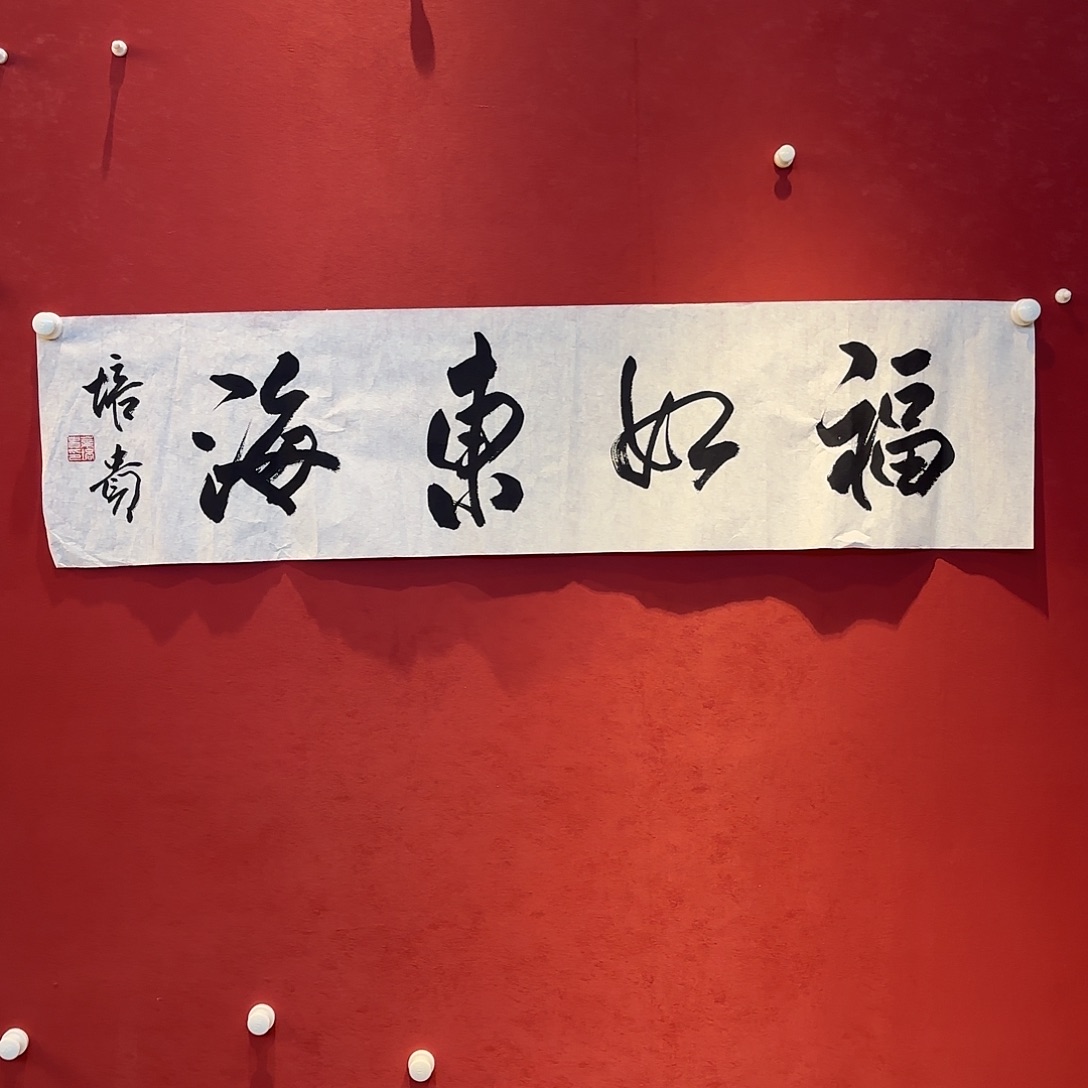 福如東海
培貴